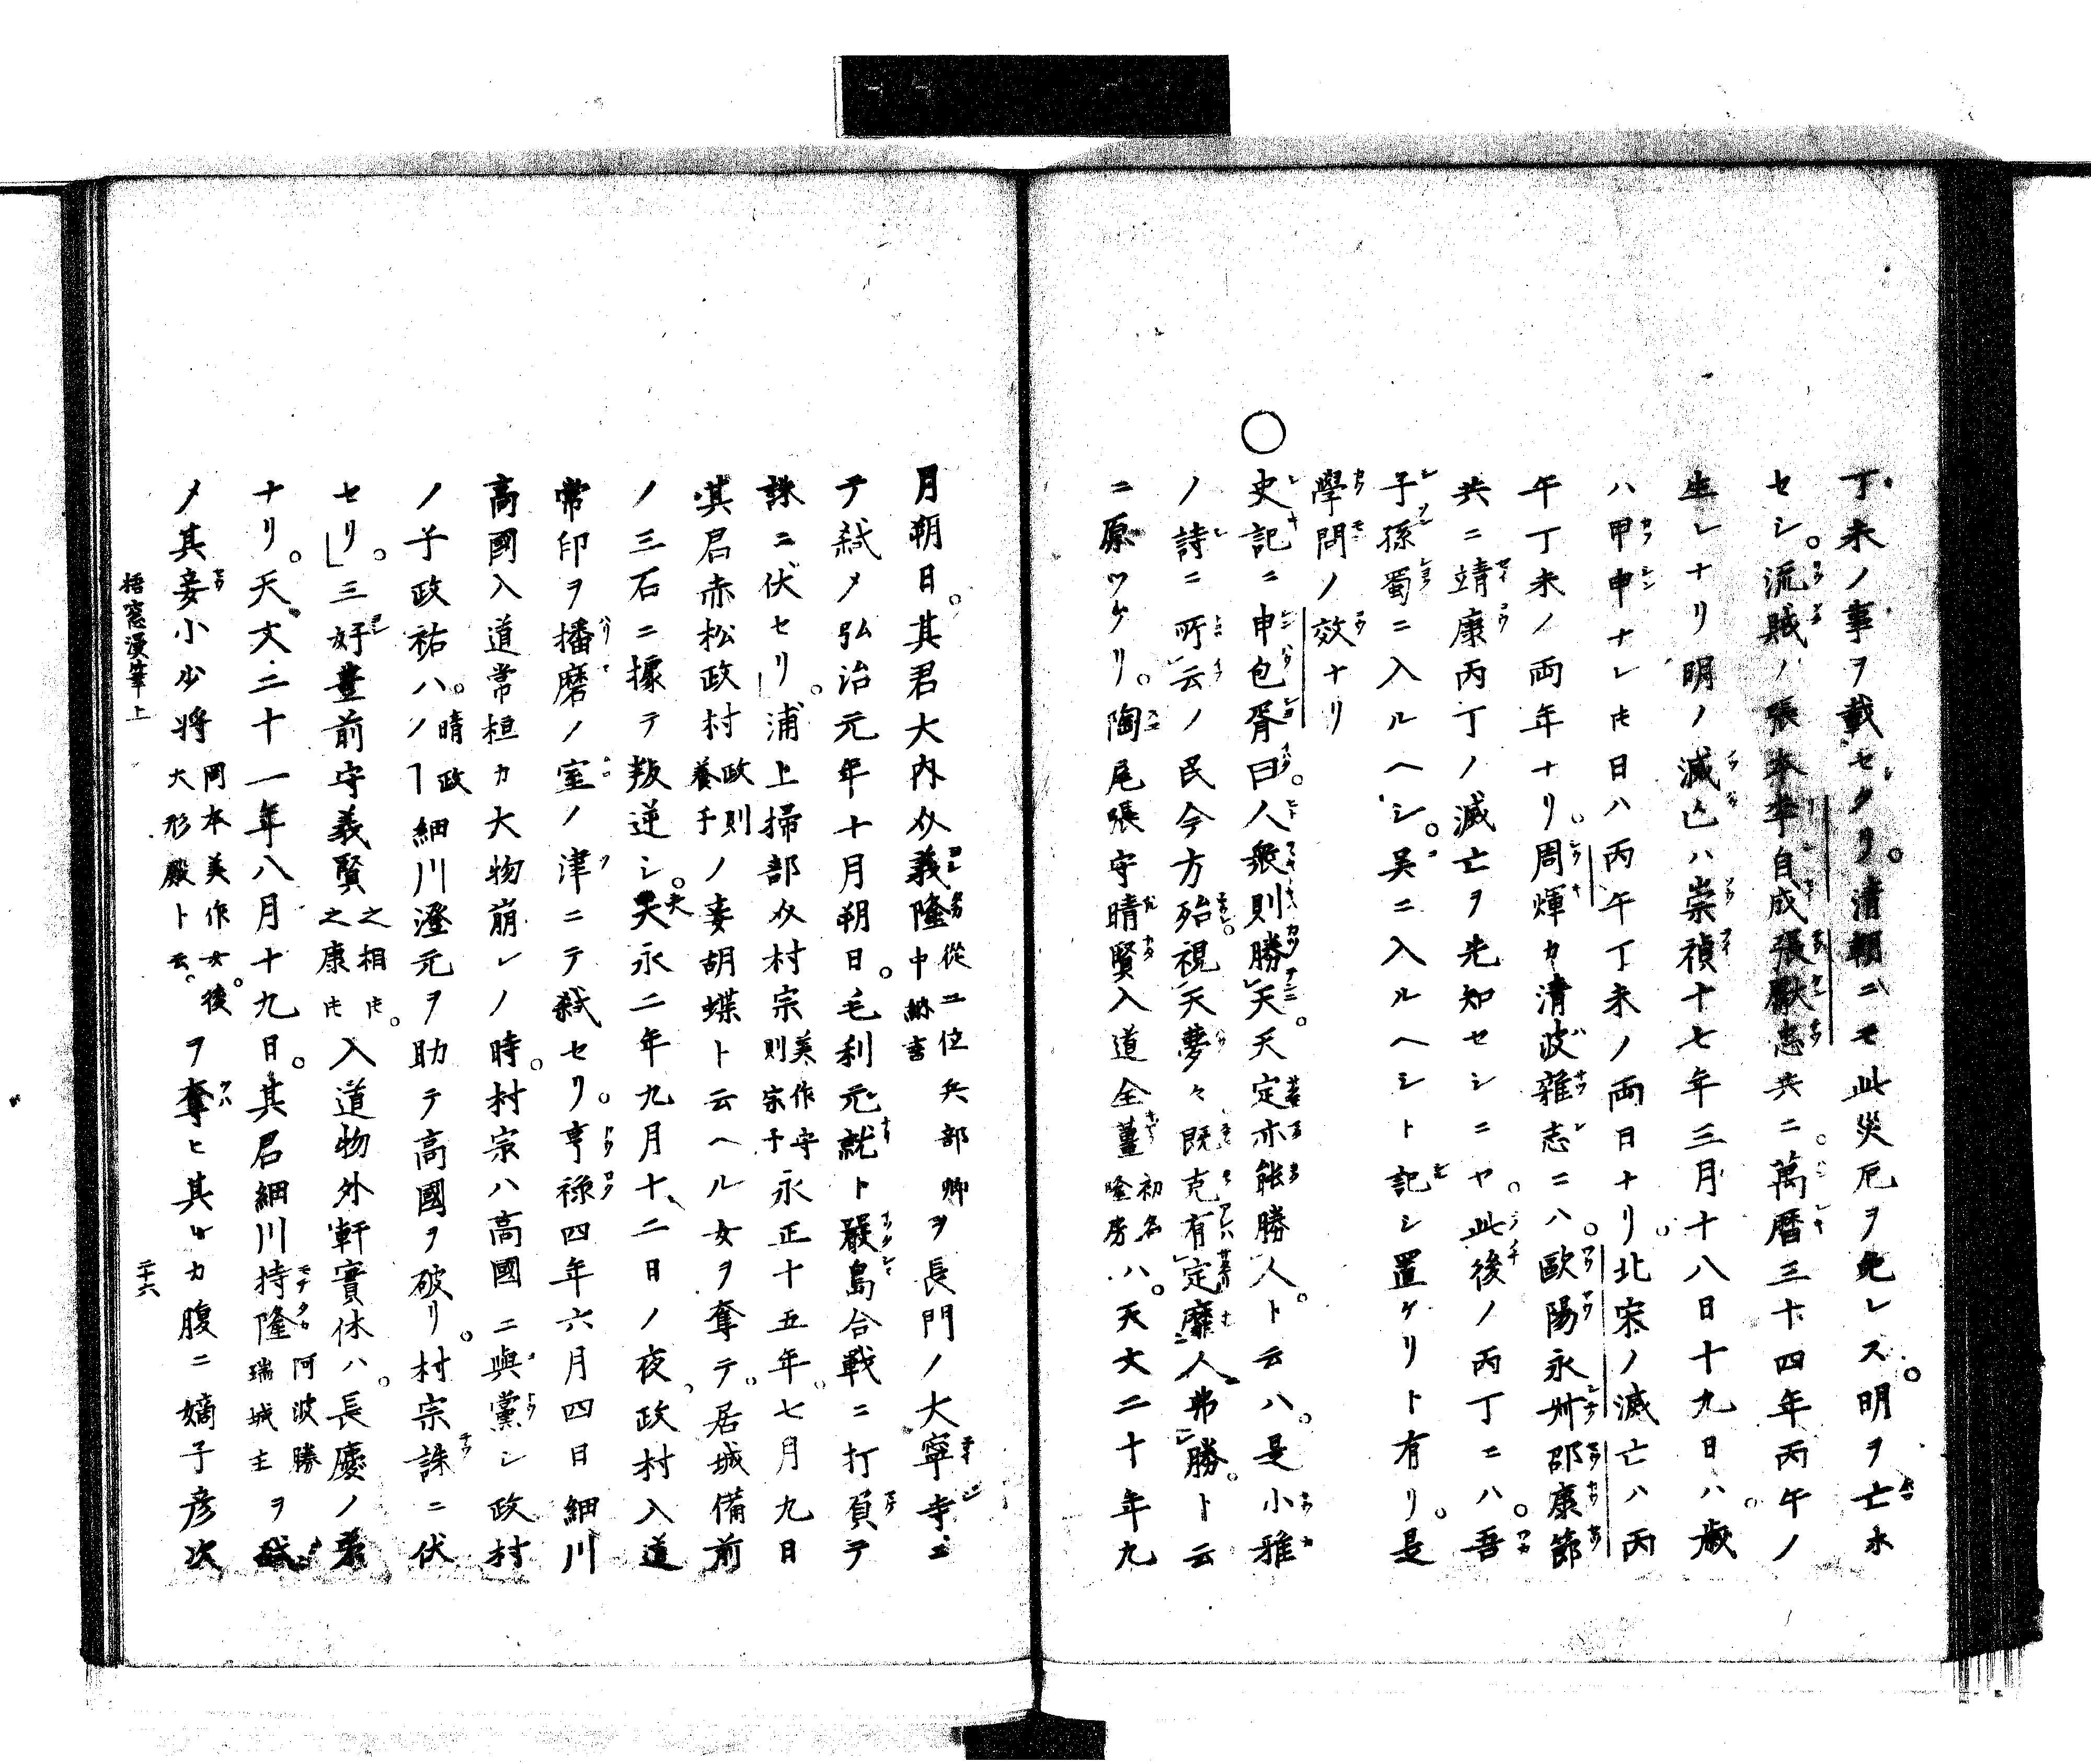 丁未ノ事ヲ載セタリ。清朝ニモ此災厄ヲ免レス。明ヲ亡ホ
セシ。流賊ノ張本李自成張獻忠共ニ。萬暦三十四年丙午ノ
生レナリ明ノ滅亡ハ崇禎十七年三月十八日十九日ハ。歳
ハ甲申ナレ𪜈日ハ丙午丁未ノ両日ナリ。北宋ノ滅亡ハ丙
午丁未ノ両年ナリ。周煇カ清波雜志ニハ。歐陽永叔邵康節
共ニ靖康丙丁ノ滅亡ヲ先知セシニヤ。此後ノ丙丁ニハ。吾
子孫蜀ニ入ルヘシ。吴ニ入ルヘシト記シ置ケリト有リ。是
學問ノ效ナリ
○史記ニ申包胥曰。人衆則勝天。天定亦能勝人。ト云ハ。是小雅
ノ詩ニ所云ノ民今方殆。視天夢々既克有定靡人弗勝。ト云
ニ原ツケリ。陶尾張守晴賢入道全薑初名隆房ハ。天文二十年九
月朔日。其君大内义義隆從二位兵部卿中納言ヲ長門ノ大寧寺ニ
テ弑メ弘治元年十月朔日。毛利元就ト嚴島合戰ニ打負テ
誅ニ伏セリ。浦上掃部义村宗美作守則宗子永正十五年。七月九日
其君赤松政村政則養子ノ妻胡蝶ト云ヘル女ヲ奪テ。居城備前
ノ三石ニ據テ叛逆シ。大永二年九月十二日ノ夜。政村入道
常印ヲ播磨ノ室ノ津ニテ弑セリ。亨祿四年六月四日細川
高國入道常桓カ大物崩レノ時。村宗ハ高國ニ與黨シ政村
ノ子政祐ハ。晴政ノ𬼀細川澄元ヲ助テ高國ヲ破リ。村宗誅ニ伏
セリ。三好豊前守義賢之相𪜈。之康𪜈入道物外軒實休ハ。長慶ノ弟
ナリ。天文二十一年八月十九日。其君細川持隆阿波勝瑞城主ヲ弑
メ其妾小少将岡本美作女。後大形殿ト云。ヲ奪ヒ其カ腹ニ嫡子彦次
梧窓漫筆上
二十六